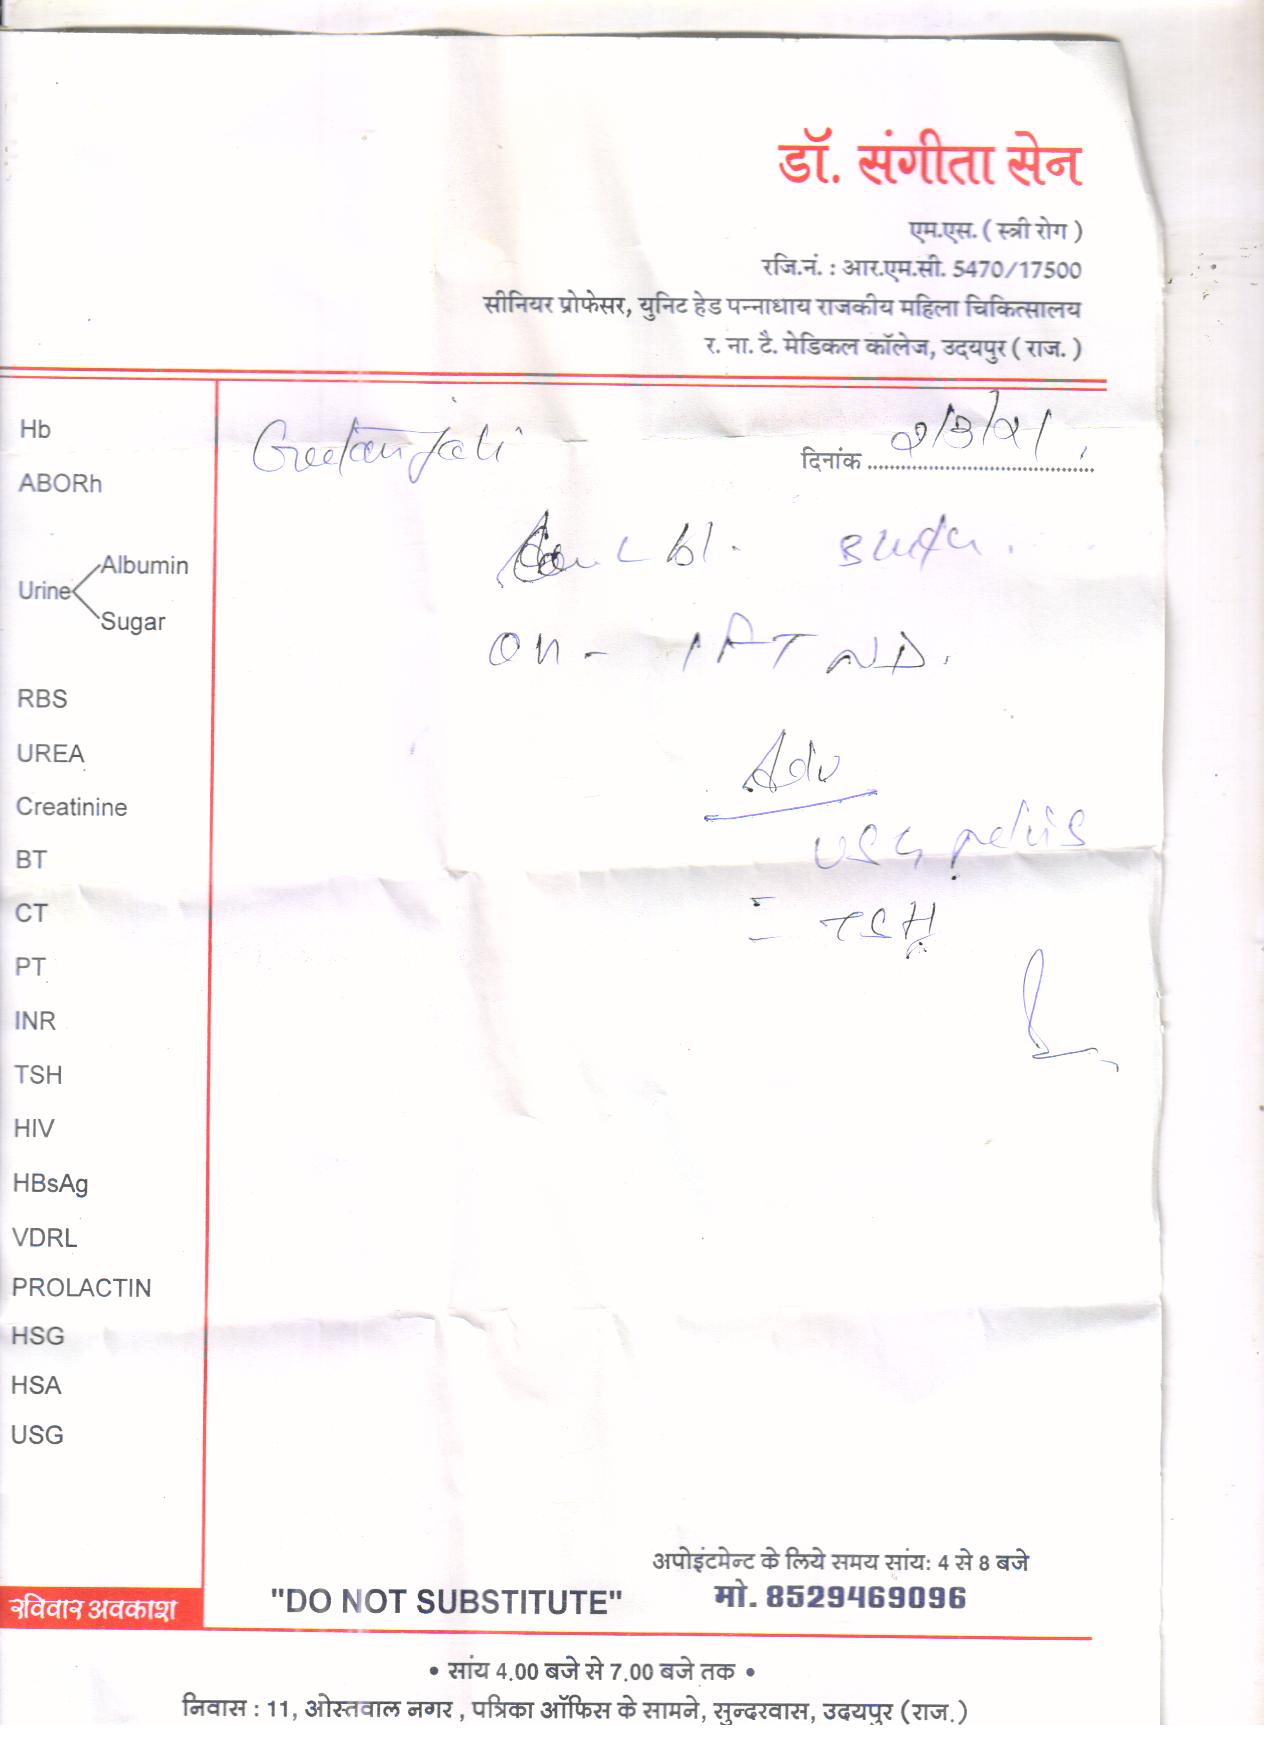 डॉ. संगीता सेन
एम.एस. ( स्त्री रोग )
रजि.नं. : आर.एम.सी. 5470/17500
सीनियर प्रोफेसर, युनिट हेड पन्नाधाय राजकीय महिला चिकित्सालय
र. ना. टै. मेडिकल कॉलेज, उदयपुर ( राज. )
Geetanjali
दिनांक
bl.
on -
Adv
USG pelvis
TSH
Hb
ABORh
Urine
Albumin
Sugar
RBS
UREA
Creatinine
BT
CT
PT
INR
TSH
HIV
HBsAg
VDRL
PROLACTIN
HSG
HSA
USG
रविवार अवकाश
"DO NOT SUBSTITUTE"
अपोइंटमेन्ट के लिये समय सांय: 4 से 8 बजे
मो. 8529469096
• सांय 4.00 बजे से 7.00 बजे तक •
निवास : 11, ओस्तवाल नगर , पत्रिका ऑफिस के सामने, सुन्दरवास, उदयपुर (राज.)